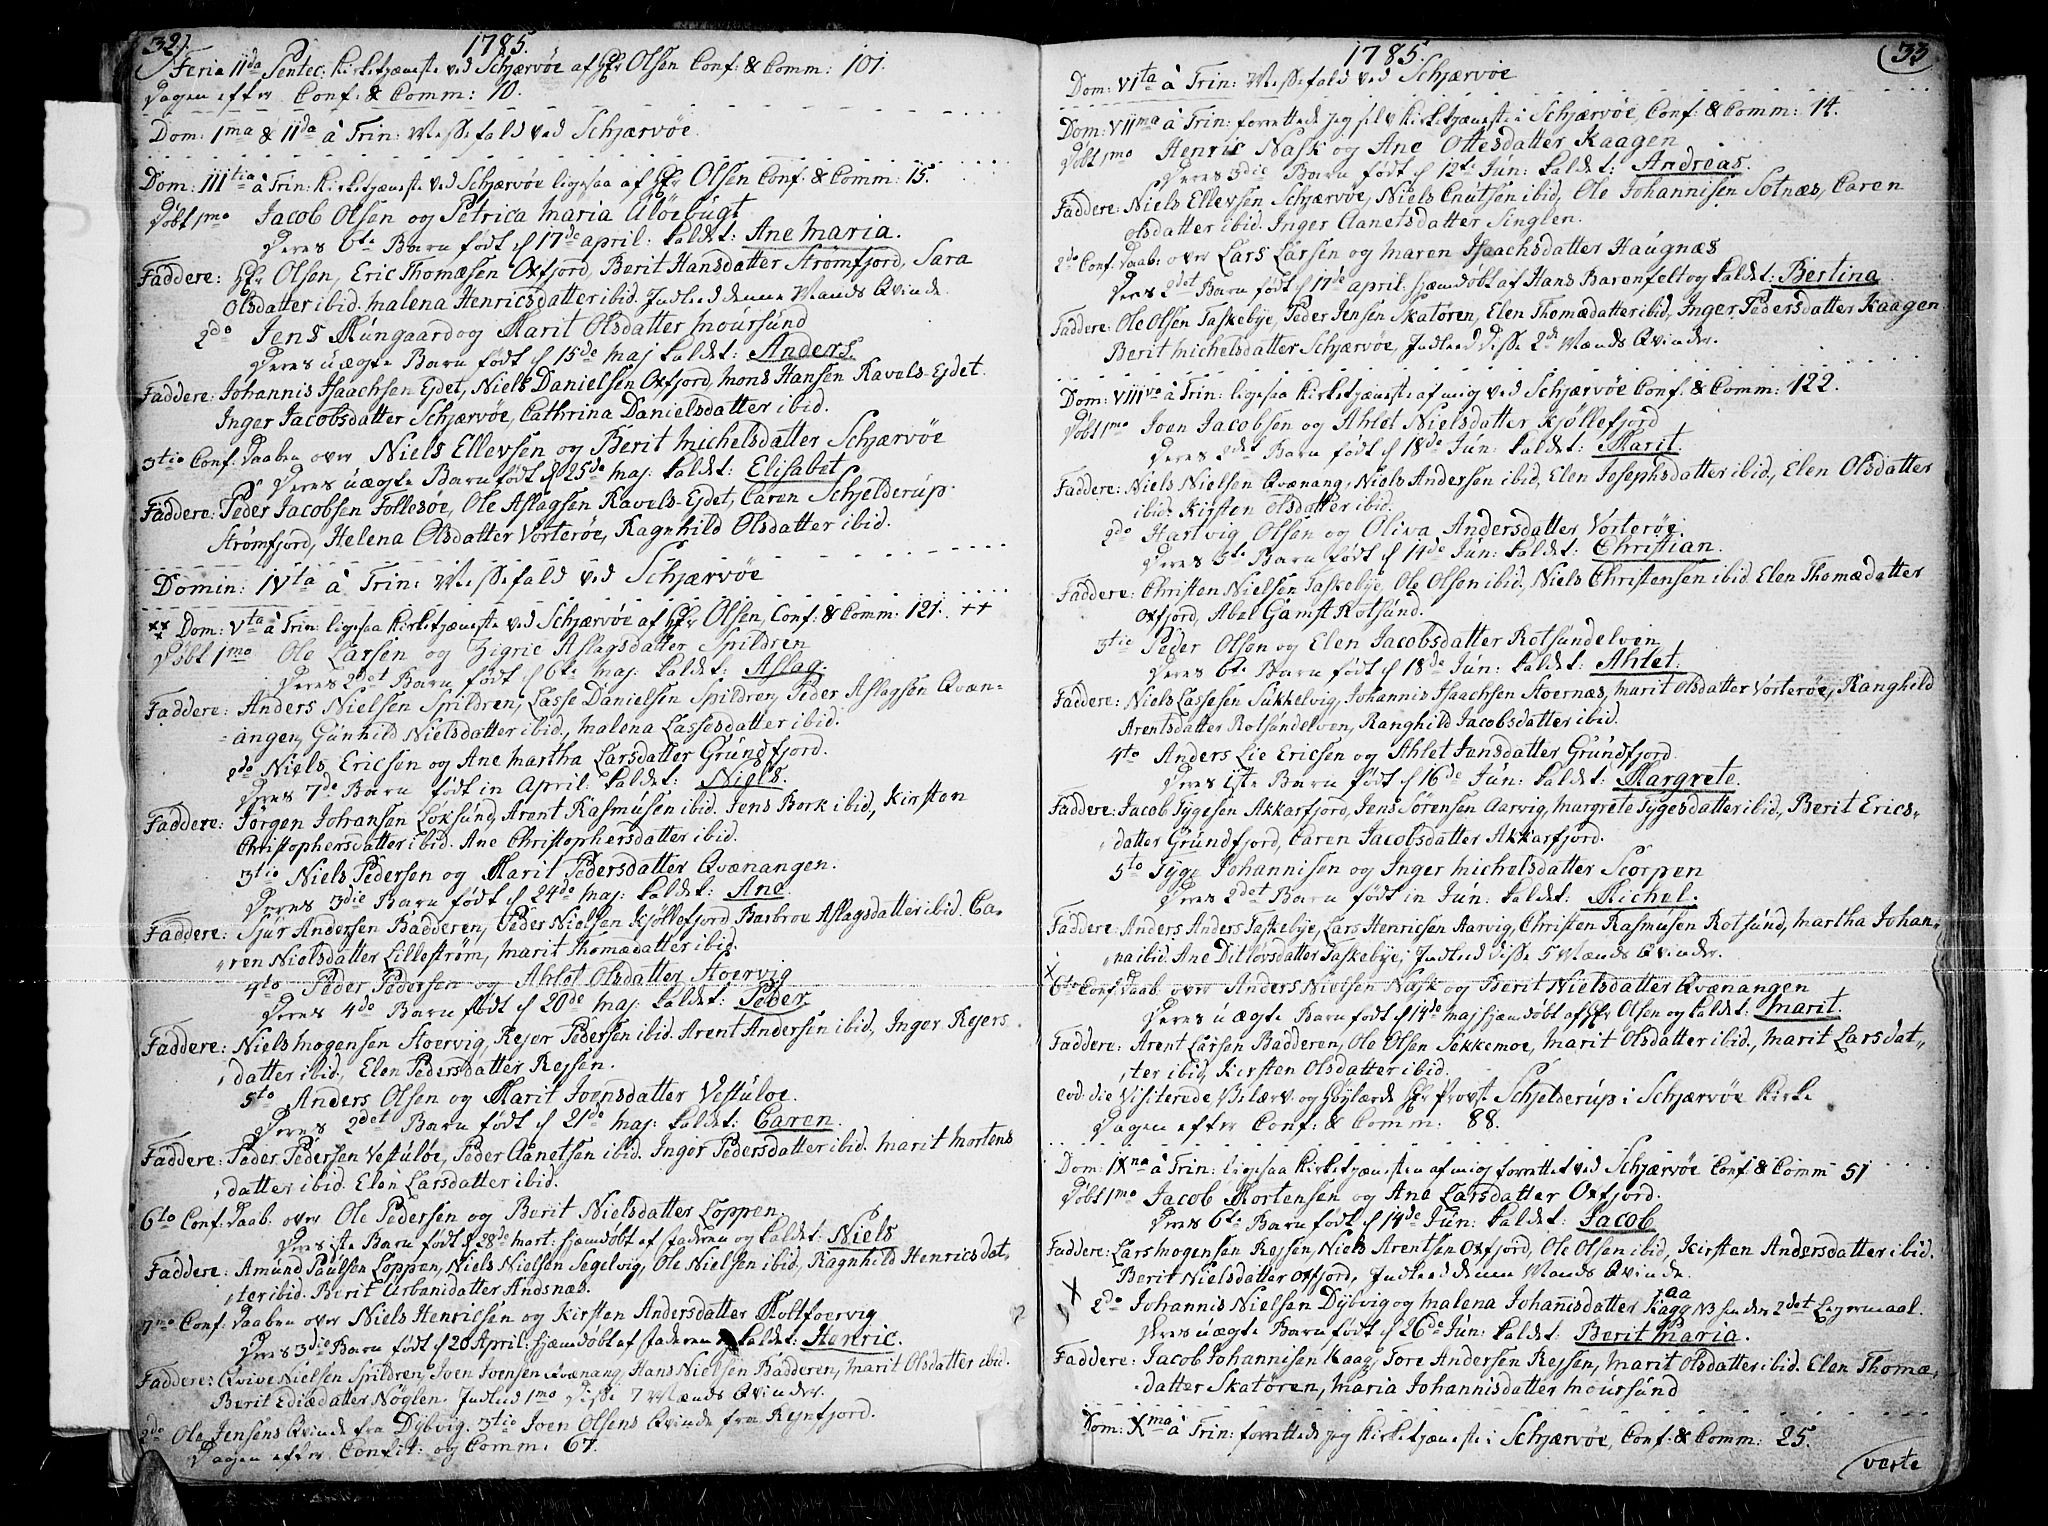 32.
1785.
Feria IIda Pentec: Kirketjæneste ved Schjærvöe af Hr Olsen Conf: & Comm: 101.
Dagen efter Conf: & Comm: 10.
Dom: 1ma & IIda à Trin: Messefald ved Schjærvöe.
Dom: IIItia à Trin: Kirketjæneste ved Schjærvöe ligesaa af Hr Olsen Conf: & Comm: 15.
Døbt 1mo Jacob Olsen og Petrica Maria Alöebugt
Deres 6te Barn født d 17de april: kaldet: Ane Maria.
Faddere: Hr Olsen, Eric Thomæsen Oxfjord, Berit Hansdatter Strömfjord, Sara
Olsdatter ibid. Malena Henricsdatter ibid. Indleed denne Mands Qvinde.
2do Jens Mungaard og Marit Olsdatter Moursund
Deres uægte Barn født d 15de Maj kaldet: Anders.
Faddere: Johannis Isaachsen Ejdet, Niels Danielsen Oxfjord, Mons Hansen Ravels-Ejdet.
Inger Jacobsdatter Schjærvöe, Cathrina Danielsdatter ibid.
3tio Conf: Daaben over Niels Ellevsen og Berit Michelsdatter Schjærvöe
Deres uægte Barn født d 25de Maj: kaldet: Elisabet
Faddere: Peder Jacobsen Follesöe, Ole Aslagsen Ravels-Ejdet, Caren Schjelderup
Strömfjord, Helena Olsdatter Vorteröe, Ragnhild Olsdatter ibid.
Domin: IVta à Trin: Messefald ved Schjærvöe
Dom: Vta à Trin: ligesaa Kirketjæneste ved Schjærvöe af Hr Olsen, Conf: & Comm: 121. ++
Døbt 1mo Ole Larsen og Zigrie Aslagsdatter Spildren
Deres 2det Barn født d 6te Maj: kaldet: Aslag.
Faddere: Anders Nielsen Spildren, Lasse Danielsen Spildren, Peder Aslagsen Qvæn-
angen, Gunhild Nielsdatter ibid., Malena Lassesdatter ibid.
2do Niels Ericsen og Ane Martha Larsdatter Grundfjord.
Deres 7de Barn født in April: kaldet: Niels.
Faddere: Jorgen Johansen Loksund, Arent Rasmusen ibid. Jens Bork ibid, Kirsten
Christophersdatter ibid. Ane Christophersdatter ibid.
3tio Niels Pedersen og Marit Pedersdatter Qvænangen.
Deres 3die Barn født d 24de Maj: kaldet: Ane.
Faddere: Sjur Andersen Badderen, Peder Nielsen Kjöllefjord Barbroe Aslagsdatter ibid. Ca-
ren Nielsdatter Lilleström, Marit Thomædatter ibid.
4to Peder Pedersen og Ahlet Olsdatter Stoervig
Deres 4de Barn født d 20de Maj: kaldet: Peder
Faddere: Niels Mogensen Stoervig, Rejer Pedersen ibid. Arent Andersen ibid, Inger Rejers
datter ibid, Elen Pedersdatter Rejsen.
5to Anders Olsen og Marit Joensdatter Vestuloe.
Deres 2det Barn født d 21de Maj: kaldet: Caren.
Faddere: Peder Pedersen Vestuloe, Peder Aanetsen ibid. Inger Pedersdatter ibid. Marit Mortens
datter ibid. Elen Larsdatter ibid.
6to Conf: Daab. over Ole Pedersen og Berit Nielsdatter Loppen.
Deres 1ste Barn født d 28de Mart: hjemdøbt af faderen og kaldet: Niels
Faddere: Amund Paulsen Loppen, Niels Nielsen Segelvig, Ole Nielsen ibid, Ragnhild Henricsdat,
ter ibid. Berit Urbanidatter Andsnæs.
7mo Conf: Daaben over Niels Henricsen og Kirsten Andersdatter Holtfoervig
Deres 3die Barn født d 20 April: hjemdøbt af faderen og kaldet: Henric.
Faddere: Qvive Nielsen Spildren, Joen Joensen Qvænang, Hans Nielsen Badderen, Marit Olsdatter ibid.
Berit Ediædatter Nöglen. Indleed 1mo disse 7 Mænds Qvinder.
2do Ole Jensens Qvinde fra Dybvig. 3tio Joen Olsens Qvinde fra Rejnfjord.
Dagen efter Confit: og Comm: 67.
1785.
33
Dom: VIta à Trin: Messefald ved Schjærvöe
Dom: VIIma à Trin: forrettede jeg selv Kirketjæneste i Schjærvöe Conf: & Comm: 14.
Døbt 1mo Henric Nask og Ane Ottesdatter Kaagen
Deres 3die Barn født d 12te Jun: kaldet: Andreas.
Faddere: Niels Ellevsen Schjærvöe, Niels Cnutsen ibid, Ole Johannisen Sotnæs, Caren
Olsdatter ibid. Inger Aanetsdatter Singlen.
2do Conf: Daab: over Lars Larsen og Maren Isaachsdatter Haugnæs
Deres 2det Barn født d 17de april: hjemdøbt af Hans Barenfelt og kaldet: Bertina
Faddere: Ole Olsen Taskebye, Peder Jensen Skatören, Elen Thomædatter ibid, Inger Pedersdatter Kaagen
Berit Michelsdatter Schjærvöe, Indleed disse 2de Mænds Qvinder.
Dom: VIIIva à Trin: ligesaa Kirketjæneste af mig ved Schjærvöe Conf: & Comm: 122.
Døbt 1mo Joen Jacobsen og Ahlet Nielsdatter Kjöllefjord
Deres 2det Barn født d 18de Jun: kaldet: Marit.
Faddere: Niels Nielsen Qvænang, Niels Andersen ibid, Elen Josephsdatter ibid., Elen Olsdatter
ibid. Kirsten Olsdatter ibid.
2do Hartvig Olsen og Oliva Andersdatter Vorteröe.
Deres 5te Barn født d 11de Jun: kaldet: Christian.
Faddere: Christen Nielsen Taskebye, Ole Olsen ibid. Niels Christensen ibid. Elen Thomædatter
Oxfjord, Abel Gamst Rotsund.
3tio Peder Olsen og Elen Jacobsdatter Rotsundelven
Deres 6te Barn født d 18de Jun: kaldet: Ahlet.
Faddere: Niels Lassesen Sukkelvig, Johannis Isaachsen Stoernæs, Marit Olsdatter Vorteröe, Ranghild
Arentsdatter Rotsundelven, Ranghild Jacobsdatter ibid.
4to Anders Lie Ericsen og Ahlet Jensdatter Grundfjord.
Deres 1ste Barn født d 16de Jun: kaldet: Margrete.
Faddere: Jacob Tygesen Akkarfjord, Jens Sörensen Aarvig, Margrete Tygesdatter ibid, Berit Erics-
datter Grundfjord, Caren Jacobsdatter Akkarfjord.
5to Tyge Johannisen og Inger Michelsdatter Scorpen
Deres 2det Barn født in Jun: kaldet: Michel.
Faddere: Anders Anders Taskebye, Lars Henricsen Aarvig, Christen Rasmusen Rotsund, Martha Johan-
na ibid. Ane Ditlövsdatter Taskebye, Indleed disse 5 Mænds Qvinder.
6to Conf: Daab: over Anders Nielsen Nask og Berit Nielsdatter Qvænangen
Deres uægte Barn født d 14de Maj hjemdøbt af Hr Olsen og kaldet: Marit.
Faddere: Arent Larsen Badderen, Ole Olsen Sekkemoe, Marit Olsdatter ibid., Marit Larsdat-
ter ibid, Kirsten Olsdatter ibid.
eod: die Visiterede, Velærv. og Höylærde Hr Provst Schjelderup i Schjærvöe Kirke
Dagen efter Conf: & Comm: 88.
Dom: IXna à Trin: ligesaa Kirketjænesten af mig forrettet ved Schjærvöe Conf: & Comm 51
Døbt 1mo Jacob Mortensen og Ane Larsdatter Oxfjord.
Deres 6te Barn født d 14de Jun: kaldet: Jacob
Faddere: Lars Mogensen Rejsen, Niels Arentsen Oxfjord, Ole Olsen ibid, Kirsten Andersdatter ibid.
Berit Nielsdatter Oxfjord, Indleed denne Mands Qvinde.
2do Johannis Nielsen Dybvig og Malena Johannisdatter Kaag NB hendes 2det Lejermaal.
Deres uægte Barn født d 26de Jun: kaldet: Berit Maria.
Faddere: Jacob Johannisen Kaag, Tore Andersen Rejsen, Marit Olsdatter ibid. Elen Thomæ,
datter Skatören, Maria Johannisdatter Moursund
Dom: Xma à Trin: forrettede jeg Kirketjæneste i Schjærvöe, Conf: & Comm: 25.
verte